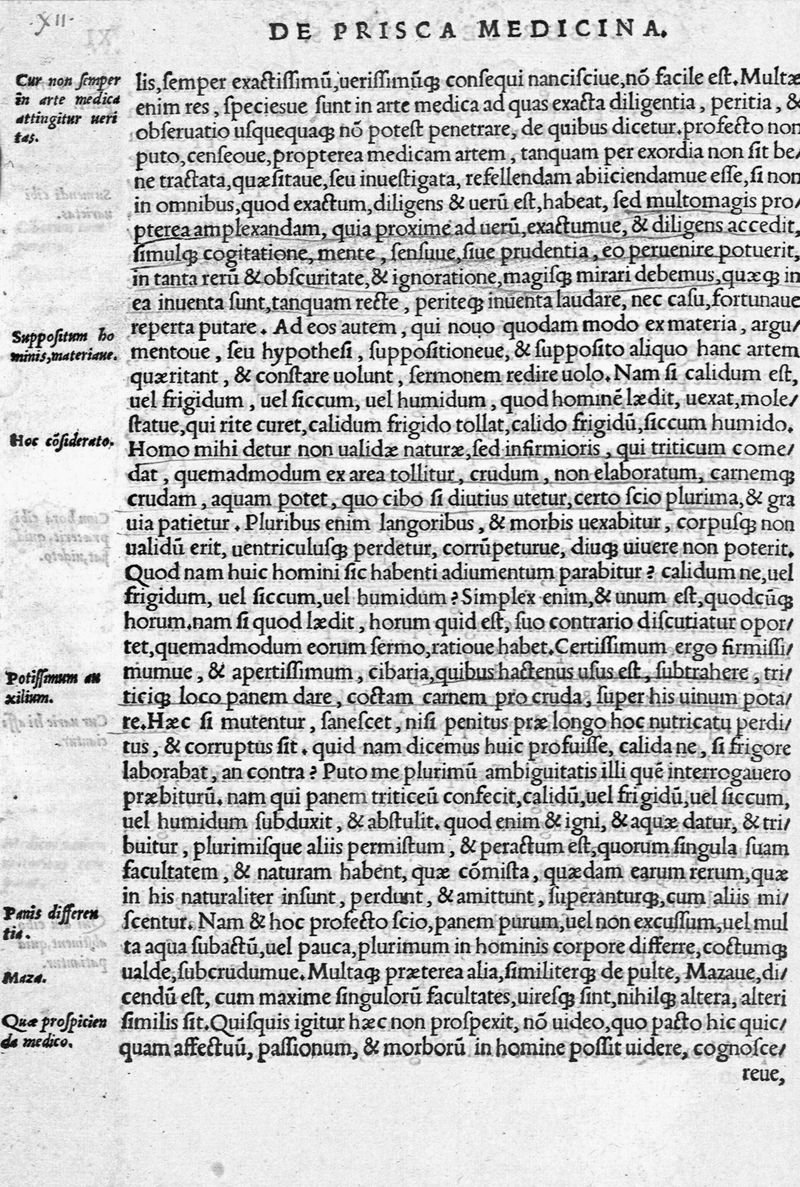 XII.
DE PRISCA MEDICINA.
Cur non ſemper
in arte medica
attingitur ueri
tas.
lis,ſemper exactiſſimũ,ueriſſimũq; conſequi nanciſciue,nõ facile eſt.Multæ
enim res, ſpeciesue ſunt in arte medica ad quas exacta diligentia, peritia, &
obſeruatio uſquequaq; nõ poteſt penetrare, de quibus dicetur.profecto non
puto,cenſeoue,propterea medicam artem, tanquam per exordia non ſit be/
ne tractata,quæſitaue,ſeu inueſtigata, refellendam abiiciendamue eſſe,ſi non
in omnibus,quod exactum,diligens & uerũ eſt,habeat, ſed multomagis pro/
pterea amplexandam, quia proxime ad uerũ,exactumue, & diligens accedit,
ſimulq; cogitatione, mente, ſenſuue,ſiue prudentia, eo peruenire potuerit,
in tanta rerũ & obſcuritate,& ignoratione,magiſq; mirari debemus,quæq; in
ea inuenta ſunt,tanquam recte, periteq; inuenta laudare, nec caſu,fortunaue
reperta putare. Ad eos autem, qui nouo quodam modo ex materia, argu/
Suppoſitum ho
minis,materiaue.
mentoue, ſeu hypotheſi, ſuppoſitioneue, & ſuppoſito aliquo hanc artem
quæritant, & conſtare uolunt, ſermonem redire uolo. Nam ſi calidum eſt,
uel frigidum, uel ſiccum, uel humidum, quod hominẽ lædit, uexat,mole/
ſtatue,qui rite curet,calidum frigido tollat,calido frigidũ,ſiccum humido.
Hoc cõſiderato.
Homo mihi detur non ualidæ naturæ,ſed infirmioris, qui triticum come/
dat, quemadmodum ex area tollitur, crudum, non elaboratum, carnemq;
crudam, aquam potet, quo cibo ſi diutius utetur,certo ſcio plurima,& gra
uia patietur. Pluribus enim langoribus, & morbis uexabitur, corpuſq; non
ualidũ erit, uentriculuſq; perdetur, corrũpeturue, diuq; uiuere non poterit.
Quod nam huic homini ſic habenti adiumentum parabitur? calidum ne,uel
frigidum, uel ſiccum,uel humidum? Simplex enim,& unum eſt,quodcũq;
horum.nam ſi quod lædit, horum quid eſt, ſuo contrario diſcutiatur opor/
tet,quemadmodum eorum ſermo,ratioue habet.Certiſſimum ergo firmiſſi/
Potiſſimum au
xilium.
mumue, & apertiſſimum, cibaria,quibus hactenus uſus eſt, ſubtrahere, tri/
ticiq; loco panem dare, coctam carnem pro cruda, ſuper his uinum pota/
re.Hæc ſi mutentur, ſaneſcet, niſi penitus præ longo hoc nutricatu perdi/
tus, & corruptus ſit. quid nam dicemus huic profuiſſe, calida ne, ſi frigore
laborabat, an contra? Puto me plurimũ ambiguitatis illi quẽ interrogauero
præbiturũ. nam qui panem triticeũ confecit,calidũ,uel frigidũ,uel ſiccum,
uel humidum ſubduxit, & abſtulit. quod enim & igni, & aquæ datur, & tri/
buitur, plurimiſque aliis permiſtum, & peractum eſt,quorum ſingula ſuam
facultatem, & naturam habent, quæ cõmiſta, quædam earum rerum,quæ
in his naturaliter inſunt, perdunt, & amittunt, ſuperanturq;,cum aliis mi/
Panis differen
tia.
ſcentur. Nam & hoc profecto ſcio,panem purum,uel non excuſſum,uel mul
ta aqua ſubactũ,uel pauca,plurimum in hominis corpore differre,coctumq;
Maza.
ualde,ſubcrudumue.Multaq; præterea alia,ſimiliterq; de pulte, Mazaue,di/
cendũ eſt, cum maxime ſingulorũ facultates,uireſq; ſint,nihilq; altera, alteri
Quæ proſpicien
da medico.
ſimilis ſit.Quiſquis igitur hæc non proſpexit, nõ uideo,quo pacto hic quic/
quam affectuũ, paſſionum, & morborũ in homine poſſit uidere, cognoſce/
reue,